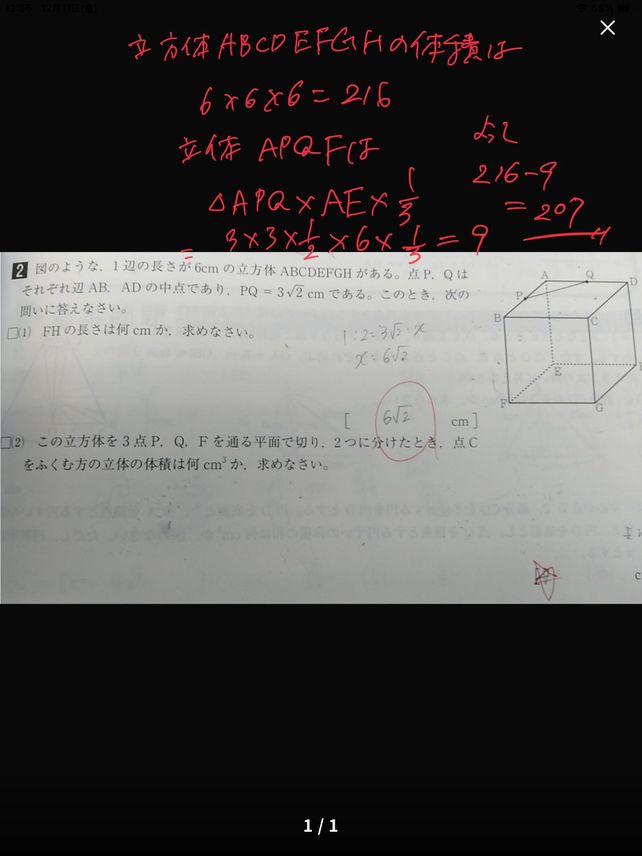 立方体ABCDEFGHの体積は
6×6×6=216
立体 APQFは
△APQ×AE×1/3
= 3×3×1/2×6×1/3=9
よって
216-9
=207
2 図のような，1辺の長さが6cmの立方体ABCDEFGHがある。点P，Qは
それぞれ辺AB，ADの中点であり，PQ=3√2cmである。このとき，次の
問いに答えなさい。
□(1) FHの長さは何cmか，求めなさい。
1:2=3√2:x
x=6√2
[ 6√2 cm]
□(2) この立方体を3点P，Q，Fを通る平面で切り，2つに分けたとき，点C
をふくむ方の立体の体積は何cm³か，求めなさい。
A Q D
P
B C
E
F G
c
1 / 1